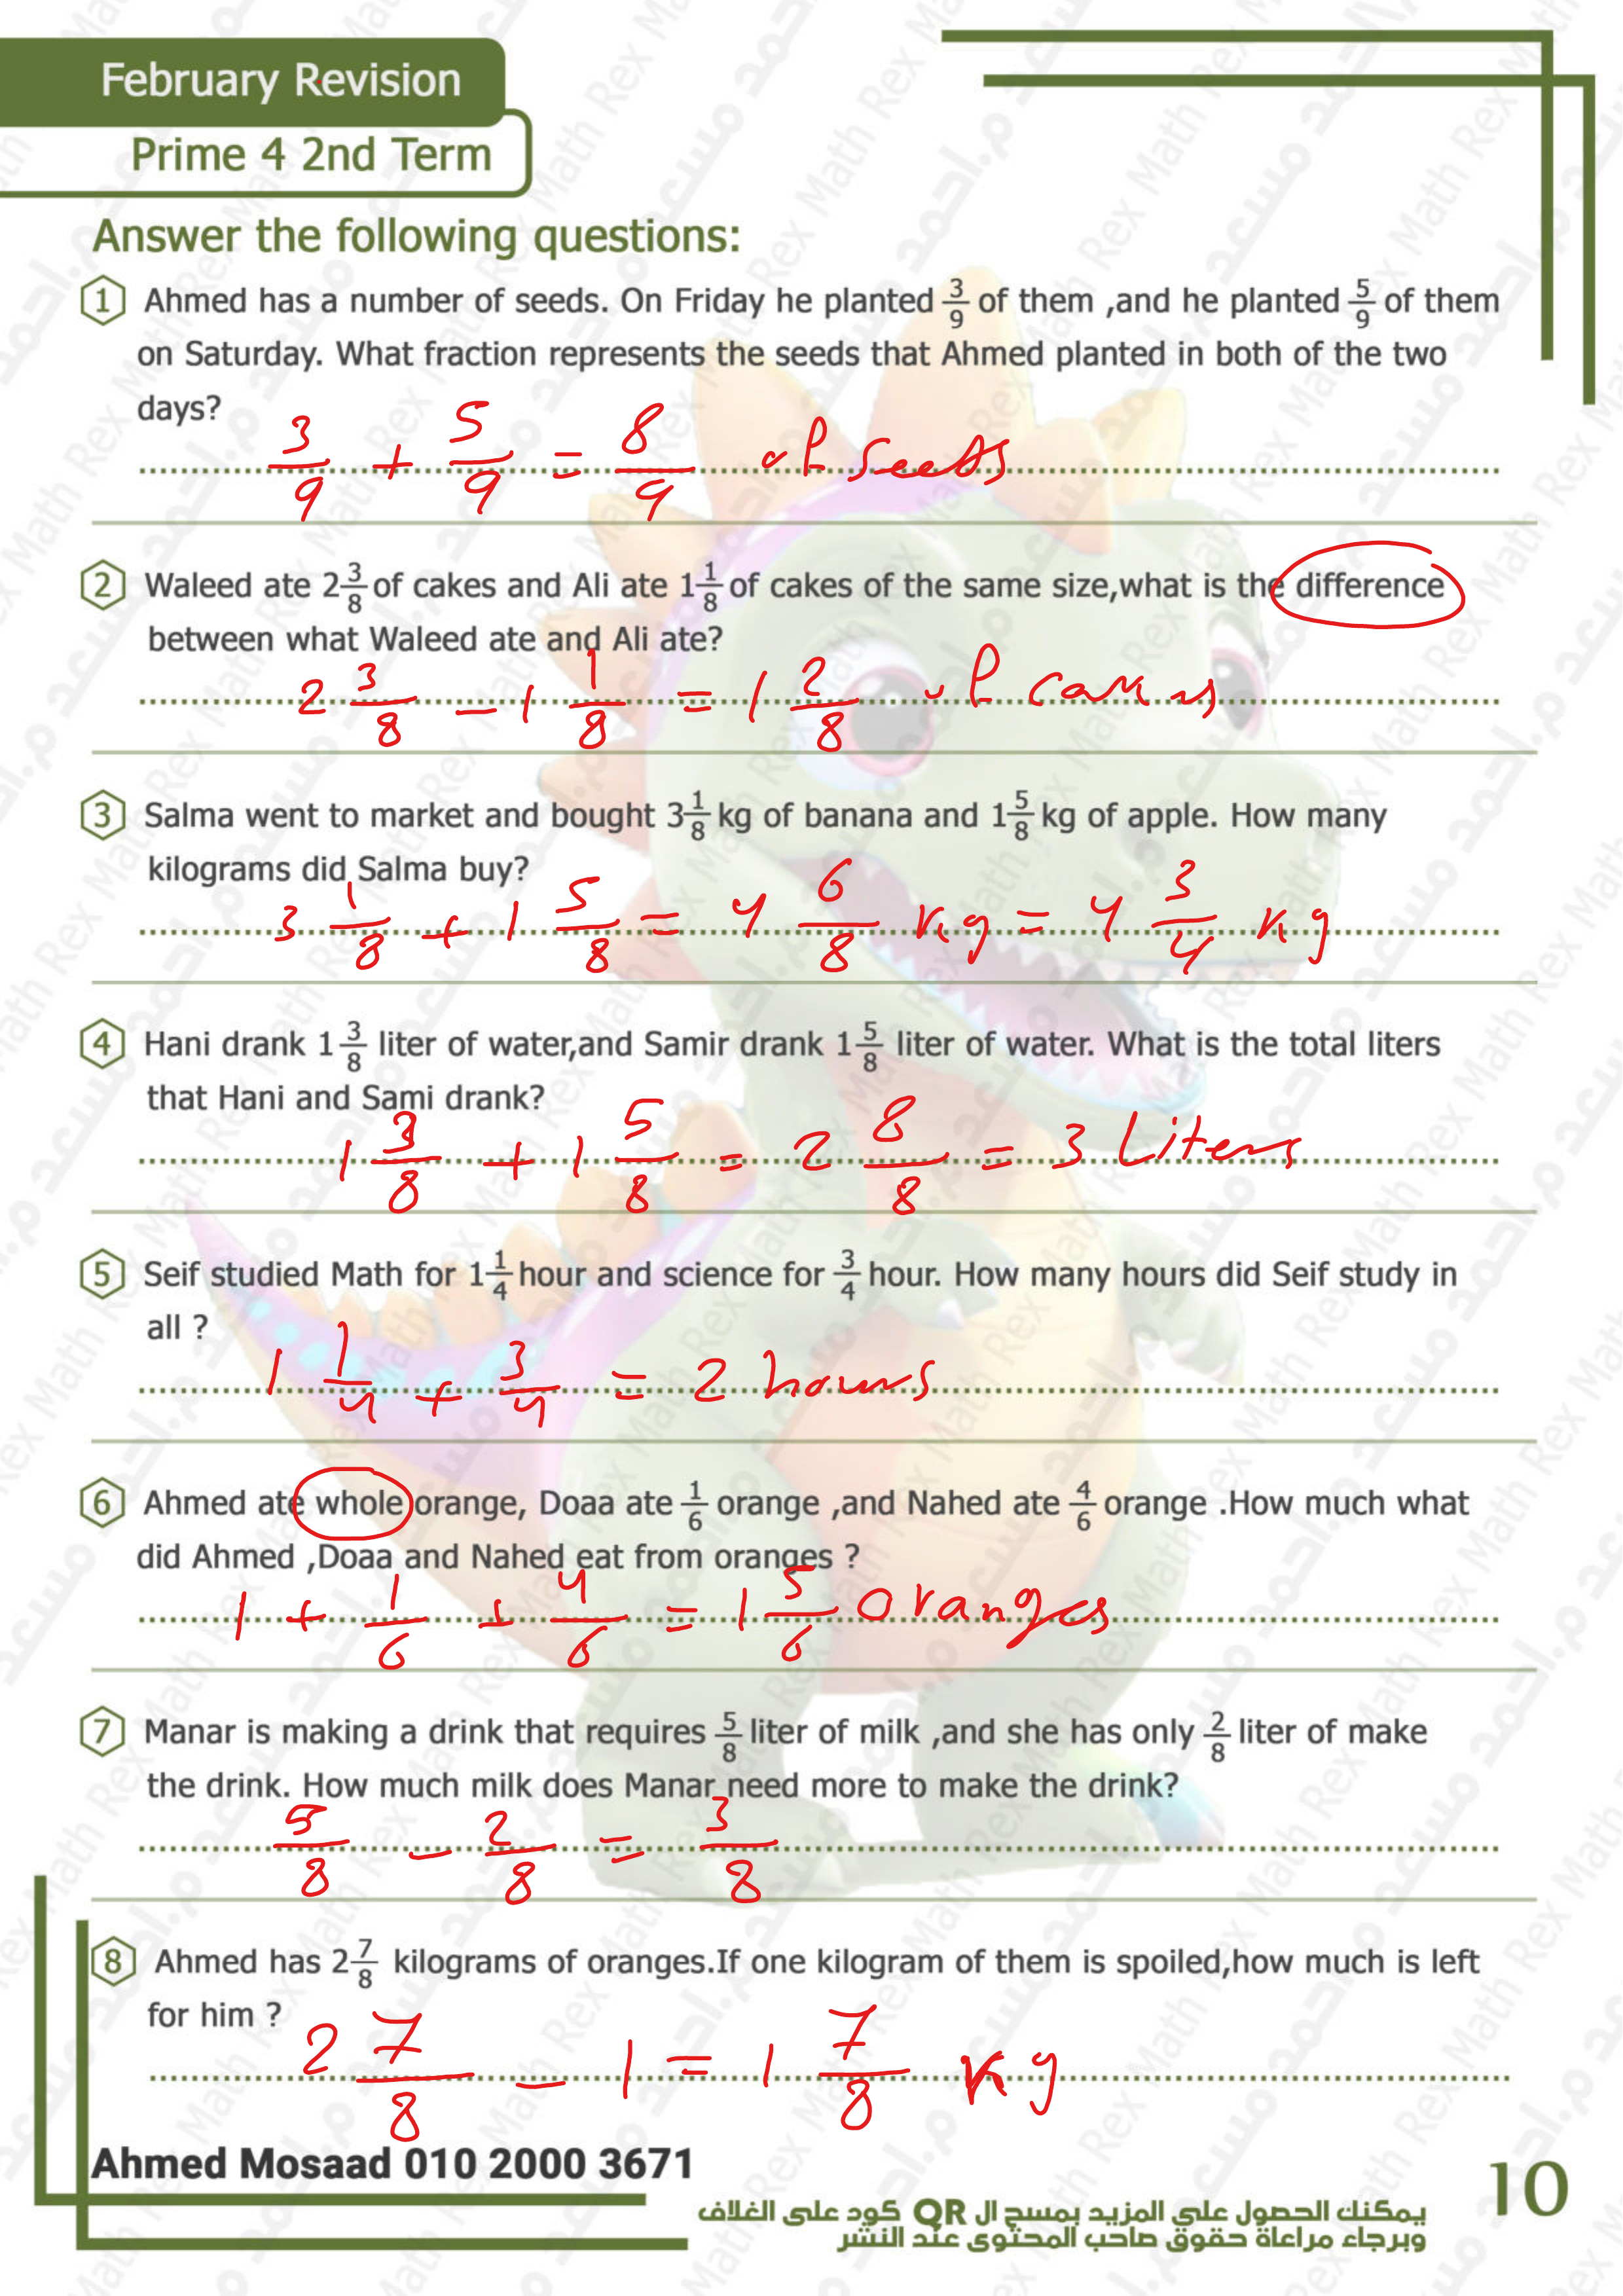 February Revision
Prime 4 2nd Term
Answer the following questions:
1 Ahmed has a number of seeds. On Friday he planted 3/9 of them ,and he planted 5/9 of them
on Saturday. What fraction represents the seeds that Ahmed planted in both of the two
days?
3/9 + 5/9 = 8/9 of seeds
2 Waleed ate 2 3/8 of cakes and Ali ate 1 1/8 of cakes of the same size,what is the difference
between what Waleed ate and Ali ate?
2 3/8 - 1 1/8 = 1 2/8 of
3 Salma went to market and bought 3 1/8 kg of banana and 1 5/8 kg of apple. How many
kilograms did Salma buy?
3 1/8 + 1 5/8 = 4 6/8 kg = 4 3/4 kg
4 Hani drank 1 3/8 liter of water,and Samir drank 1 5/8 liter of water. What is the total liters
that Hani and Sami drank?
1 3/8 + 1 5/8 = 2 8/8 = 3 Liters
5 Seif studied Math for 1 1/4 hour and science for 3/4 hour. How many hours did Seif study in
all ?
1 1/4 + 3/4 = 2 hours
6 Ahmed ate whole orange, Doaa ate 1/6 orange ,and Nahed ate 4/6 orange .How much what
did Ahmed ,Doaa and Nahed eat from oranges ?
1 + 1/6 + 4/6 = 1 5/6 oranges
7 Manar is making a drink that requires 5/8 liter of milk ,and she has only 2/8 liter of make
the drink. How much milk does Manar need more to make the drink?
5/8 - 2/8 = 3/8
8 Ahmed has 2 7/8 kilograms of oranges.If one kilogram of them is spoiled,how much is left
for him ?
2 7/8 - 1 = 1 7/8 kg
Ahmed Mosaad 010 2000 3671
10
يمكنك الحصول علي المزيد بمسح ال QR كود على الغلاف
وبرجاء مراعاة حقوق صاحب المحتوى عند النشر